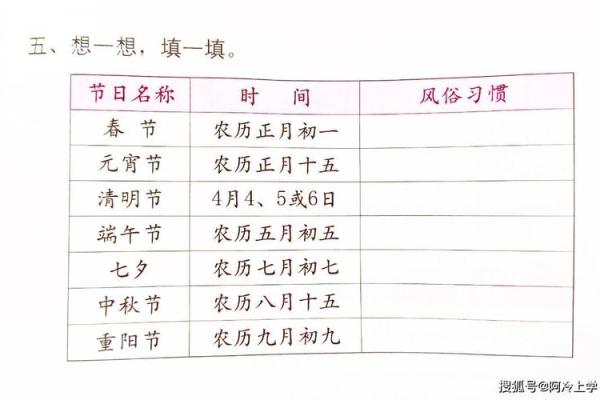 五、想一想，填一填。
节日名称 时 间 风俗习惯
春 节 农历正月初一
元宵节 农历正月十五
清明节 4月4、5或6日
端午节 农历五月初五
七夕 农历七月初七
中秋节 农历八月十五
重阳节 农历九月初九
搜狐号@阿冷上学